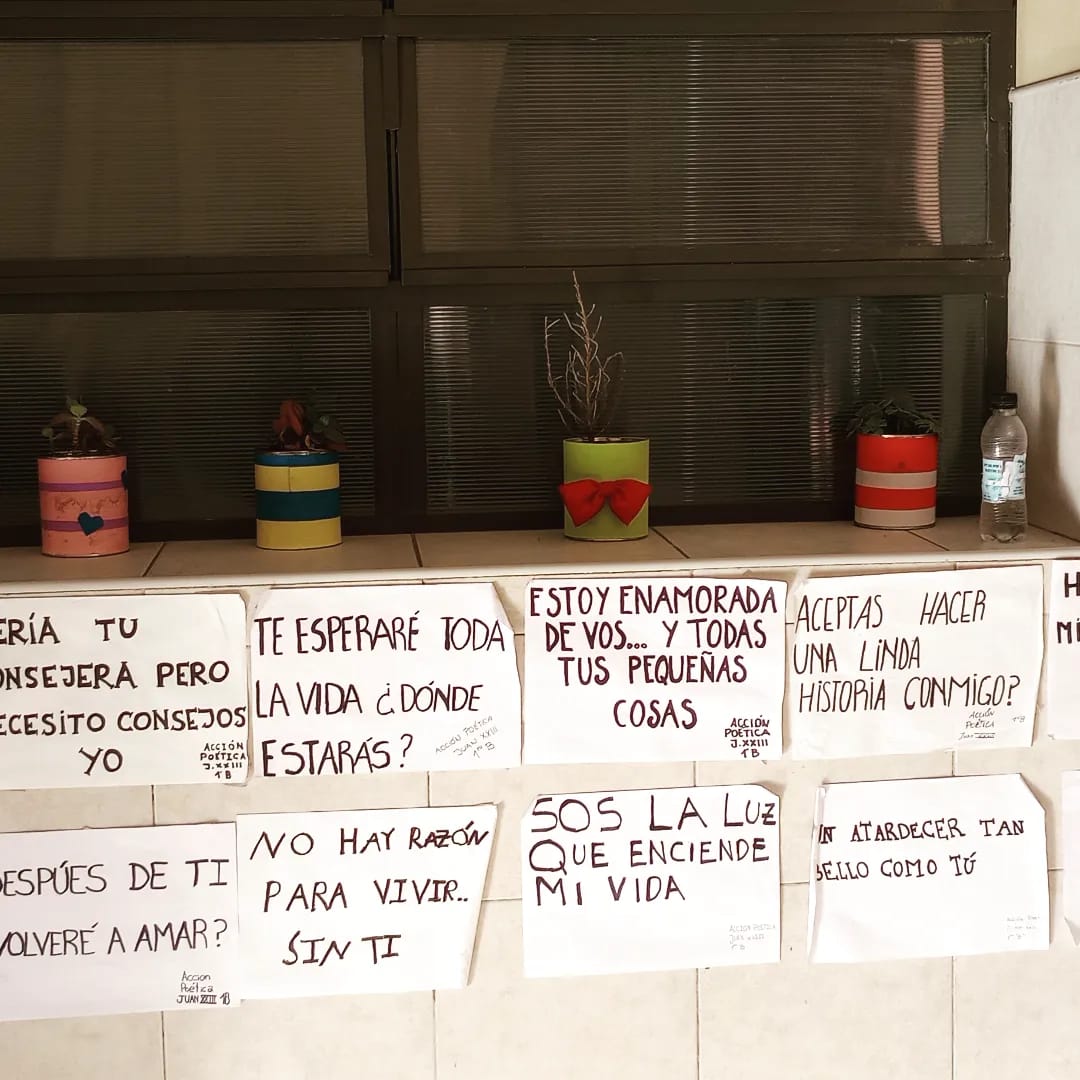 ERÍA TU
ONSEJERA PERO
ECESITO CONSEJOS
YO
ACCIÓN
POÉTICA
J.XXIII
1°B
TE ESPERARÉ TODA
LA VIDA ¿DÓNDE
ESTARÁS?
ACCIÓN POÉTICA
JUAN XXIII
1ro B
ESTOY ENAMORADA
DE VOS... Y TODAS
TUS PEQUEÑAS
COSAS
ACCIÓN
POÉTICA
J.XXIII
1°B
ACEPTAS HACER
UNA LINDA
HISTORIA CONMIGO?
ACCIÓN
POÉTICA 1°B
JUAN XXIII
H
MI
DESPÚES DE TI
VOLVERÉ A AMAR?
Accion
Poética
JUAN XXIII 1B
NO HAY RAZÓN
PARA VIVIR..
SIN TI
SOS LA LUZ
QUE ENCIENDE
MI VIDA
ACCIÓN POETICA
JUAN XXIII
1°B
UN ATARDECER TAN
BELLO COMO TÚ